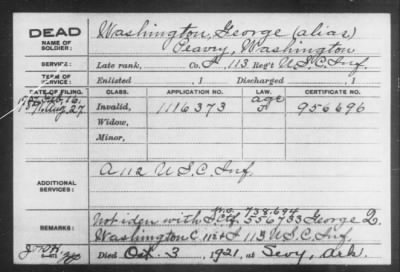 DEAD
NAME OF SOLDIER:
Washington, George (alias)
Peavry, Washington
SERVICE:
Late rank, Co. I 113 Reg't U.S.C. Inf.
TERM OF SERVICE:
Enlisted , 1 Discharged , 1
DATE OF FILING. CLASS. APPLICATION NO. LAW. CERTIFICATE NO.
Invalid, 1116373 age 956696
Aug 27
Widow,
Minor,
ADDITIONAL SERVICES:
A 112 U.S.C. Inf.
REMARKS:
738.694
Not iden with 556733 George Q.
Washington C 11 + I 113 U.S.C. Inf.
Died Oct. 3, 1921, at Sevy, Ark.